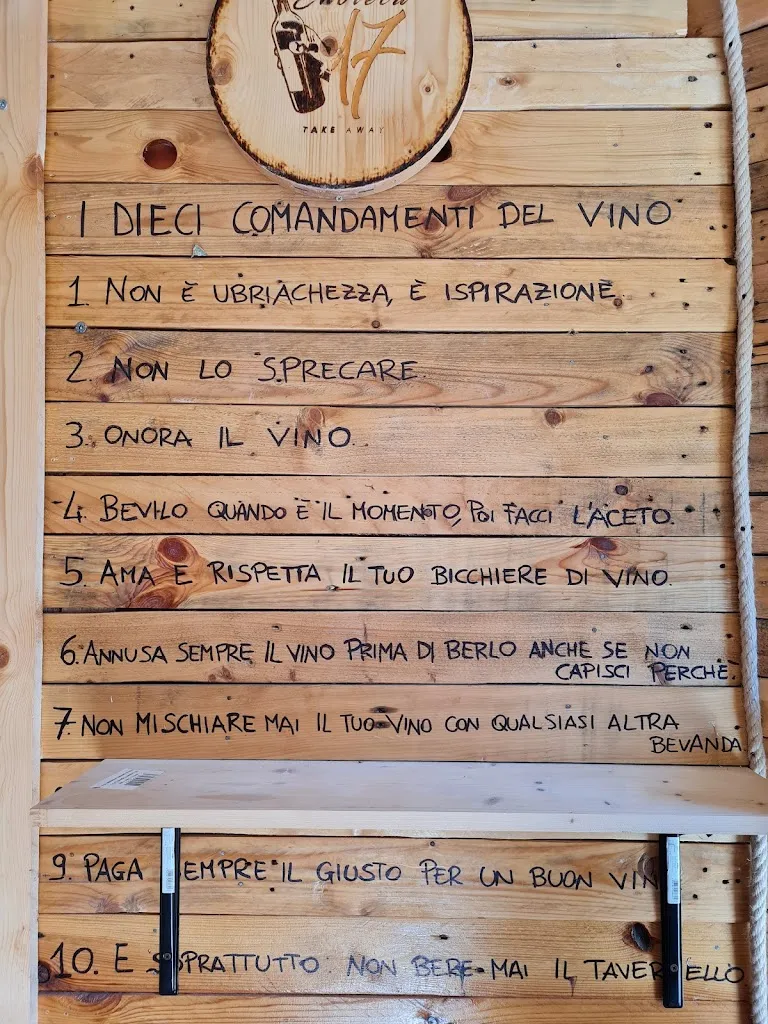 Enoteca
17
TAKE AWAY
I DIECI COMANDAMENTI DEL VINO
1 NON È UBRIACHEZZA, È ISPIRAZIONE.
2. NON LO SPRECARE.
3. ONORA IL VINO.
4. BEVILO QUANDO È IL MOMENTO, POI FACCI L'ACETO.
5. AMA E RISPETTA IL TUO BICCHIERE DI VINO.
6. ANNUSA SEMPRE IL VINO PRIMA DI BERLO ANCHE SE NON
CAPISCI PERCHÈ.
7. NON MISCHIARE MAI IL TUO VINO CON QUALSIASI ALTRA
BEVANDA
9. PAGA SEMPRE IL GIUSTO PER UN BUON VINO
10. E SOPRATTUTTO NON BERE MAI IL TAVERNELLO